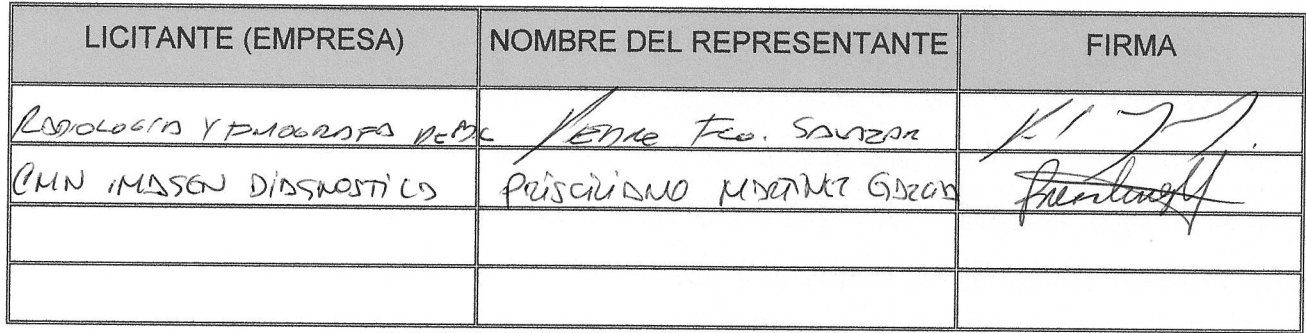 LICITANTE (EMPRESA) NOMBRE DEL REPRESENTANTE FIRMA
RADIOLOGÍA Y Fco. SALAZAR
CMN IMAGEN DIAGNOSTICA PRISCILIANO MARTINEZ GARCIA